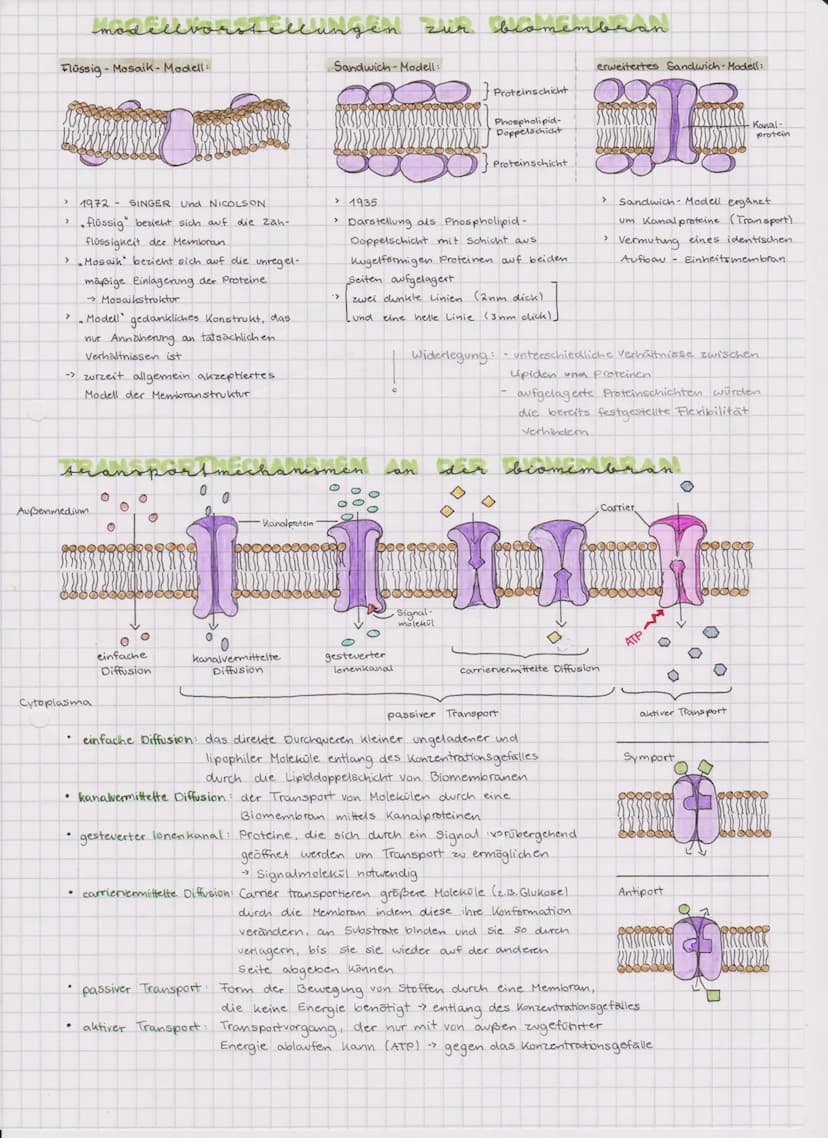 modellvorstellungen zur biomembran
Flüssig-Mosaik-Modell:
› 1972 - SINGER und NICOLSON
› „flüssig" bezieht sich auf die Zäh-
flüssigkeit der Membran
› „Mosaik" bezieht sich auf die unregel-
mäßige Einlagerung der Proteine
→ Mosaikstruktur
› „Modell" gedankliches Konstrukt, das
nur Annäherung an tatsächlichen
Verhältnissen ist
→ zurzeit allgemein akzeptiertes
Modell der Membranstruktur
Sandwich-Modell:
Proteinschicht
Phospholipid-
Doppelschicht
Proteinschicht
› 1935
› Darstellung als Phospholipid-
Doppelschicht mit Schicht aus
kugelförmigen Proteinen auf beiden
Seiten aufgelagert
› zwei dunkle Linien (2nm dick)
und eine helle Linie (3nm dick)
erweitertes Sandwich-Modell:
Kanal-
protein
› Sandwich-Modell ergänzt
um Kanalproteine (Transport)
› Vermutung eines identischen
Aufbau - Einheitsmembran
Widerlegung: - unterschiedliche Verhältnisse zwischen
Lipiden und Proteinen
- aufgelagerte Proteinschichten würden
die bereits festgestellte Flexibilität
verhindern
transportmechanismen an der biomembran
Außenmedium
Kanalprotein
Carrier
Signal-
molekül
ATP
einfache
Diffusion
kanalvermittelte
Diffusion
gesteuerter
Ionenkanal
carriervermittelte Diffusion
Cytoplasma
passiver Transport
aktiver Transport
• einfache Diffusion: das direkte Durchqueren kleiner ungeladener und
lipophiler Moleküle entlang des Konzentrationsgefälles
durch die Lipiddoppelschicht von Biomembranen
• kanalvermittelte Diffusion: der Transport von Molekülen durch eine
Biomembran mittels Kanalproteinen
• gesteuerter Ionenkanal: Proteine, die sich durch ein Signal vorübergehend
geöffnet werden um Transport zu ermöglichen
→ Signalmolekül notwendig
• carriervermittelte Diffusion: Carrier transportieren größere Moleküle (z.B. Glukose)
durch die Membran indem diese ihre Konformation
verändern, an Substrate binden und sie so durch
verlagern, bis sie sie wieder auf der anderen
Seite abgeben können
• passiver Transport: Form der Bewegung von Stoffen durch eine Membran,
die keine Energie benötigt → entlang des Konzentrationsgefälles
• aktiver Transport: Transportvorgang, der nur mit von außen zugeführter
Energie ablaufen kann (ATP) → gegen das Konzentrationsgefälle
Symport
Antiport